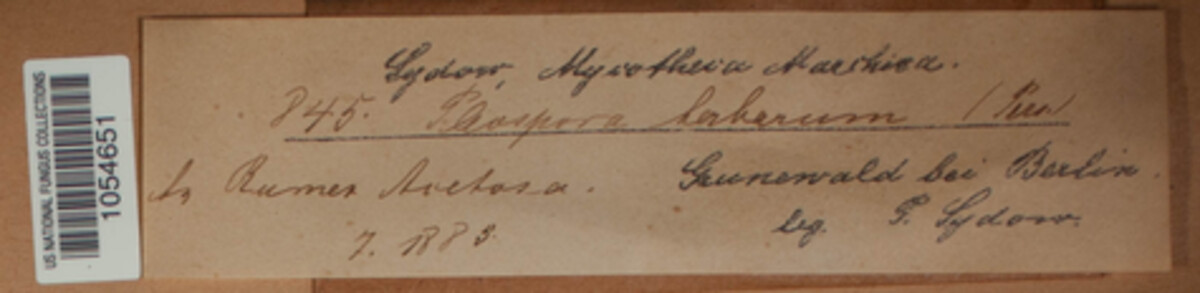 US NATIONAL FUNGUS COLLECTIONS
1054651
Sydow, Mycotheca Marchica.
845. Pleospora herbarum (Pers)
An Rumex Acetosa.
Grunewald bei Berlin.
7. 1883.
leg. P. Sydow.